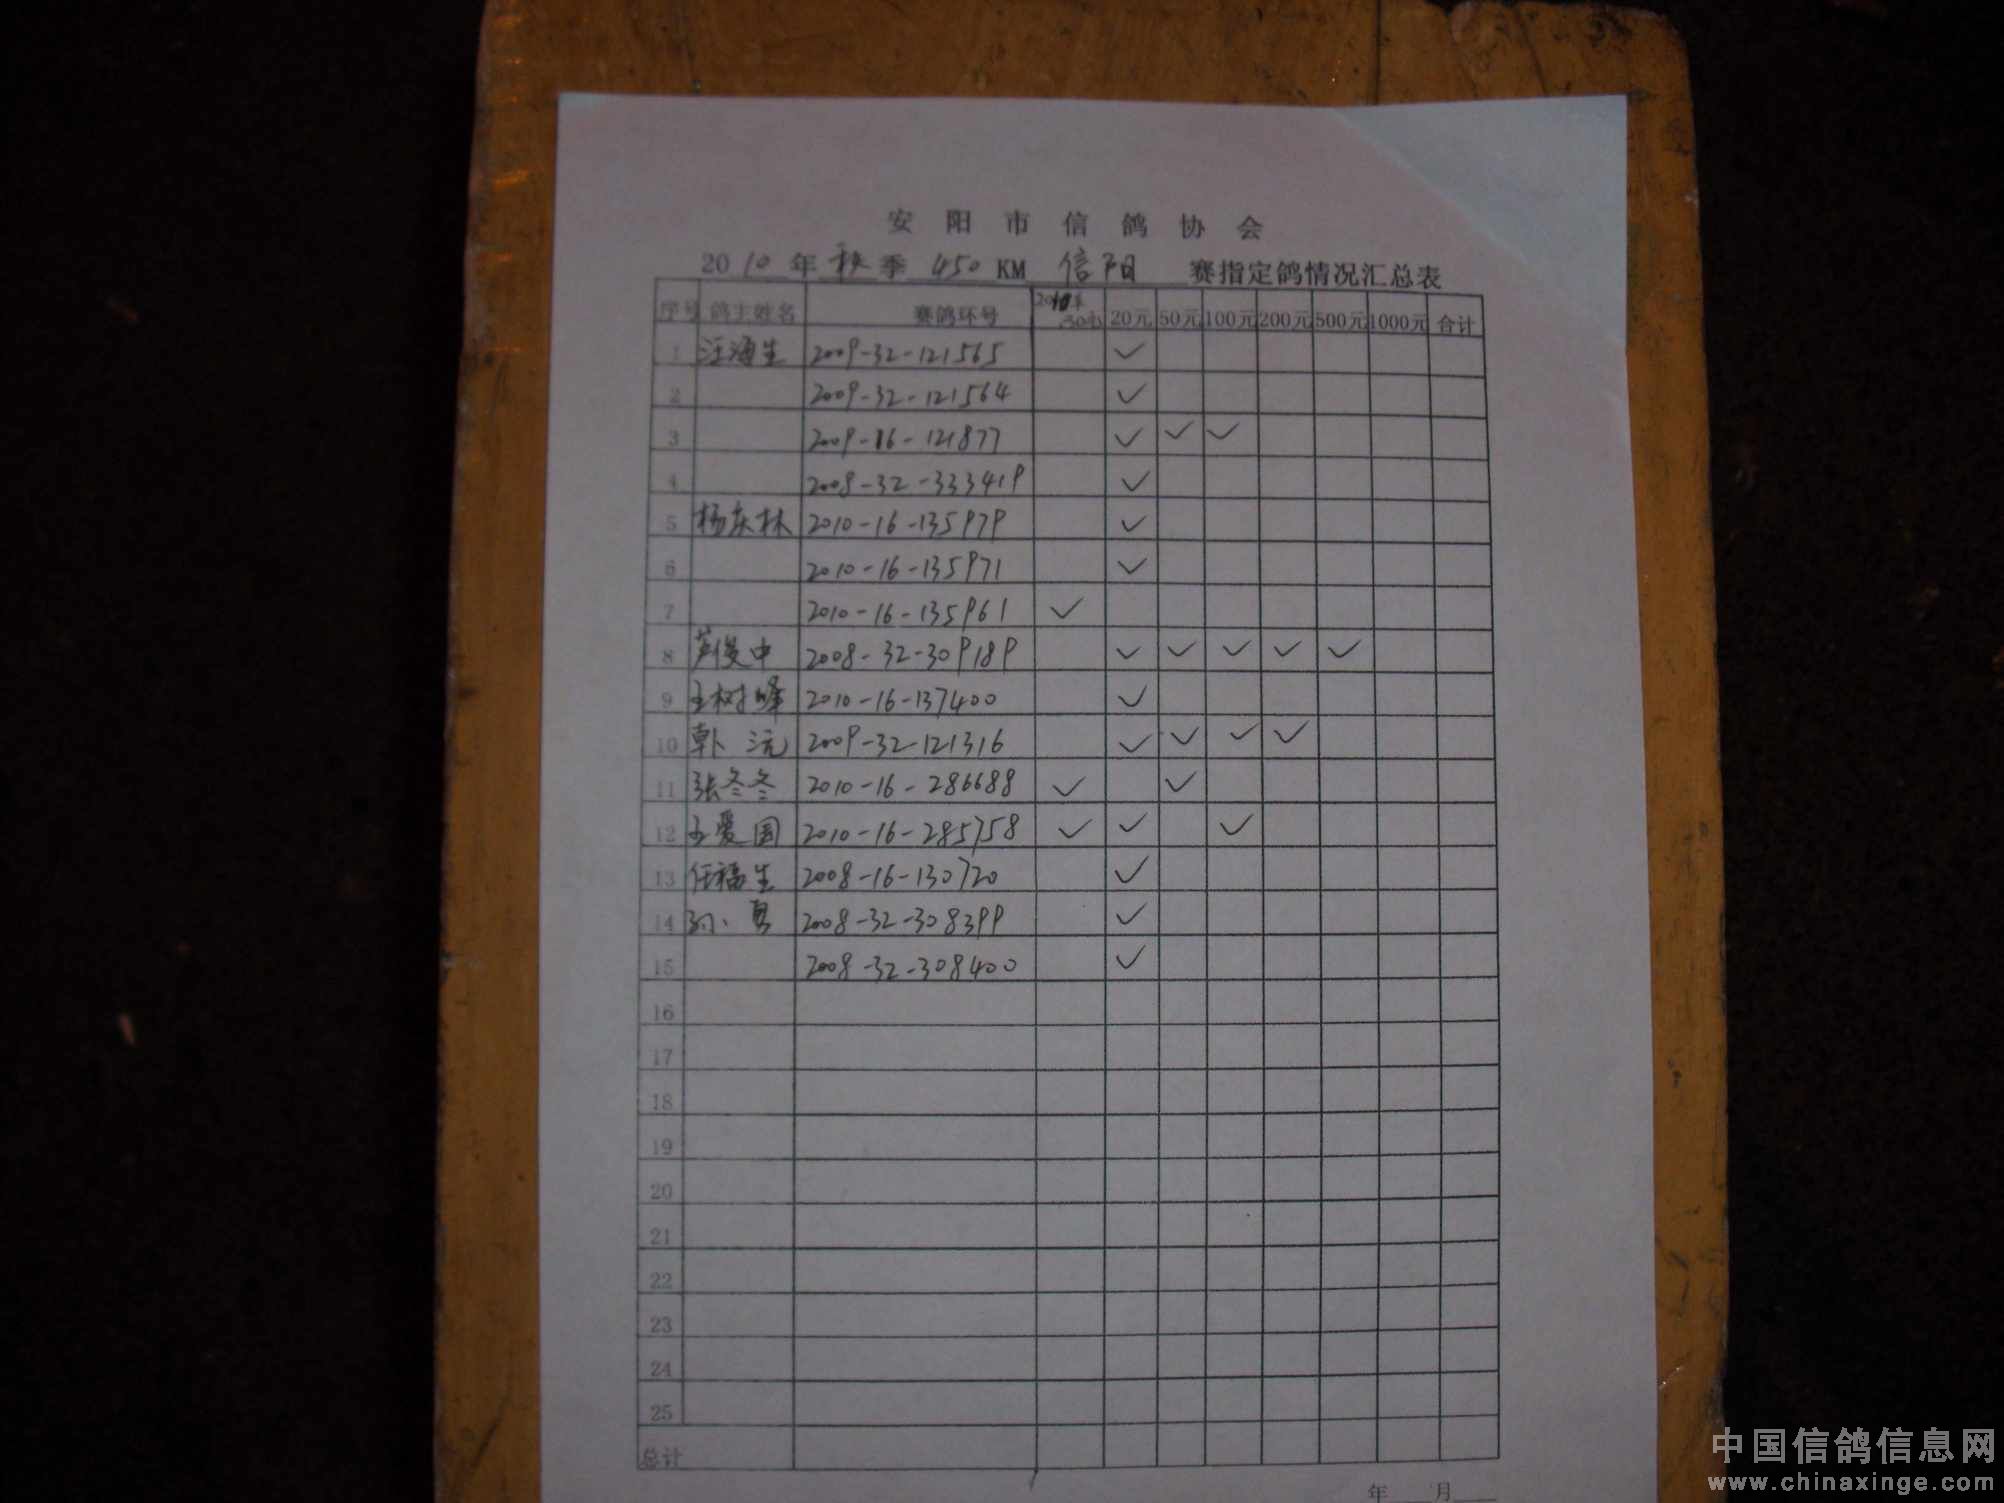 安阳市信鸽协会
2010年秋季450KM信阳赛指定鸽情况汇总表
序号 鸽主姓名 赛鸽环号 30元 20元 50元 100元 200元 500元 1000元 合计
1 汪海生 2009-32-121565 ✓
2 2009-32-121564 ✓
3 2009-16-121877 ✓ ✓ ✓
4 2008-32-333419 ✓
5 杨庆林 2010-16-135979 ✓
6 2010-16-135971 ✓
7 2010-16-135961 ✓
8 芦俊中 2008-32-309189 ✓ ✓ ✓ ✓ ✓
9 王树峰 2010-16-137400 ✓
10 韩沅 2009-32-121316 ✓ ✓ ✓ ✓
11 张冬冬 2010-16-286688 ✓ ✓
12 王爱国 2010-16-285758 ✓ ✓ ✓
13 任福生 2008-16-130720 ✓
14 2008-32-308399 ✓
15 2008-32-308400 ✓
16
17
18
19
20
21
22
23
24
25
总计
年 月
中国信鸽信息网
www.chinaxinge.com